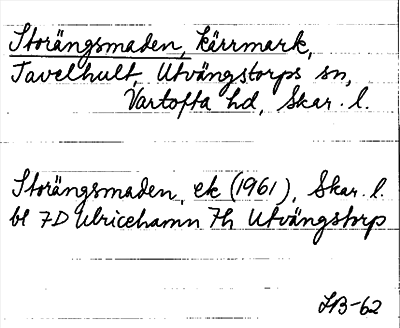 Storängsmaden, kärrmark,
Tavelhult, Utvängstorps sn,
Vartofta hd, Skar. l.
Storängsmaden, ek (1961), Skar. l.
bl 7D Ulricehamn 7h Utvängstorp